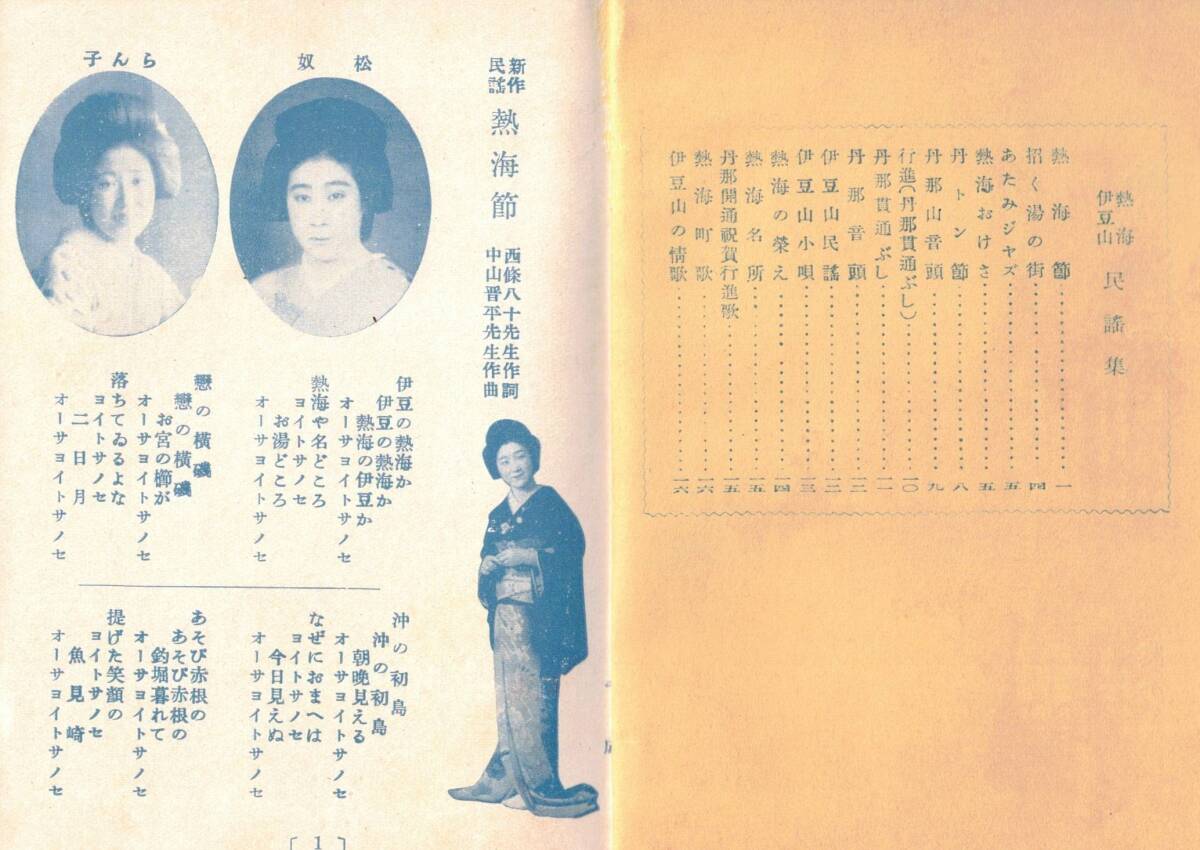 熱海
伊豆山
民謠集
熱海節……一
招く湯の街……四
あたみジヤズ……五
熱海おけさ……五
丹トン節……八
丹那山音頭……九
行進(丹那貫通ぶし)……一〇
丹那貫通ぶし……一一
丹那音頭……一二
伊豆山民謠……一二
伊豆山小唄……一三
熱海の榮え……一四
熱海名所……一五
丹那開通祝賀行進歌……一五
熱海町歌……一六
伊豆山の情歌……一六
新作
民謠
熱海節
西條八十先生作詞
中山晋平先生作曲
松奴
らん子
伊豆の熱海か
伊豆の熱海か
熱海の伊豆か
オーサヨイトサノセ
熱海や名どころ
ヨイトサノセ
お湯どころ
オーサヨイトサノセ
戀の橫磯
戀の橫磯
お宮の櫛が
オーサヨイトサノセ
落ちてゐるよな
ヨイトサノセ
二日月
オーサヨイトサノセ
沖の初島
沖の初島
朝晩見える
オーサヨイトサノセ
なぜにおまへは
ヨイトサノセ
今日見えぬ
オーサヨイトサノセ
あそび赤根の
あそび赤根の
釣堀暮れて
オーサヨイトサノセ
提げた笑顔の
ヨイトサノセ
魚見崎
オーサヨイトサノセ
〔1〕